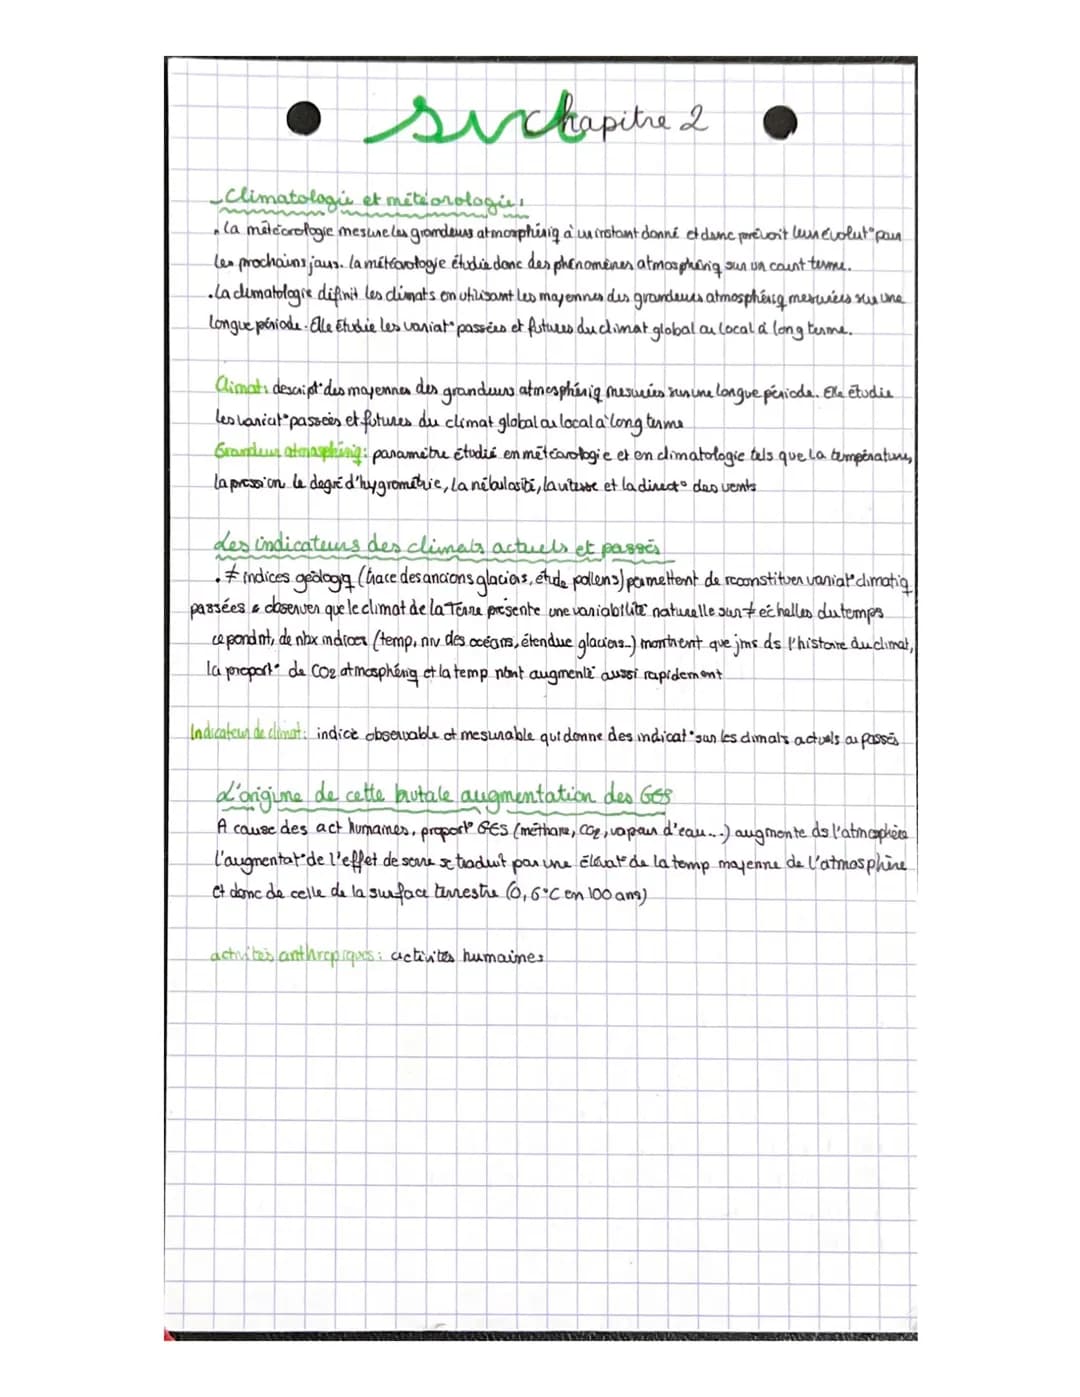 svt chapitre 2
Climatologie et météorologie :
. La météorologie mesure les grandeurs atmosphériq à un instant donné et donc prévoit leur évolut° pour
les prochains jours. La météorologie étudie donc des phénomènes atmosphériq sur un court terme.
. La climatologie définit les climats en utilisant les moyennes des grandeurs atmosphériq mesurées sur une
longue période. Elle étudie les variat° passées et futures du climat global ou local à long terme.
Climat : descript° des moyennes des grandeurs atmosphériq mesurées sur une longue période. Elle étudie
les variat° passées et futures du climat global ou local à long terme
Grandeur atmosphériq : paramètre étudié en météorologie et en climatologie tels que la température,
la pression le degré d'hygrométrie, la nébulosité, la vitesse et la direct° des vents
Les indicateurs des climats actuels et passés
. ≠ indices géologiq (trace des anciens glaciers, étude pollens) permettent de reconstituer variat° climatiq
passées & observer que le climat de la Terre présente une variabilité naturelle sur ≠ échelles du temps
cependnt, de nbx indices (temp, niv des océans, étendue glaciers...) montrent que jms ds l'histoire du climat,
la proport° de CO2 atmosphériq et la temp n'ont augmenté aussi rapidement
Indicateur de climat : indice observable et mesurable qui donne des indicat° sur les climats actuels ou passés
L'origine de cette brutale augmentation des GES
A cause des act humaines, proport° GES (méthane, CO2, vapeur d'eau...) augmente ds l'atmosphère
l'augmentat° de l'effet de serre se traduit par une élévat° de la temp moyenne de l'atmosphère
et donc de celle de la surface terrestre (0,6°C en 100 ans)
activités anthropiques : activités humaines